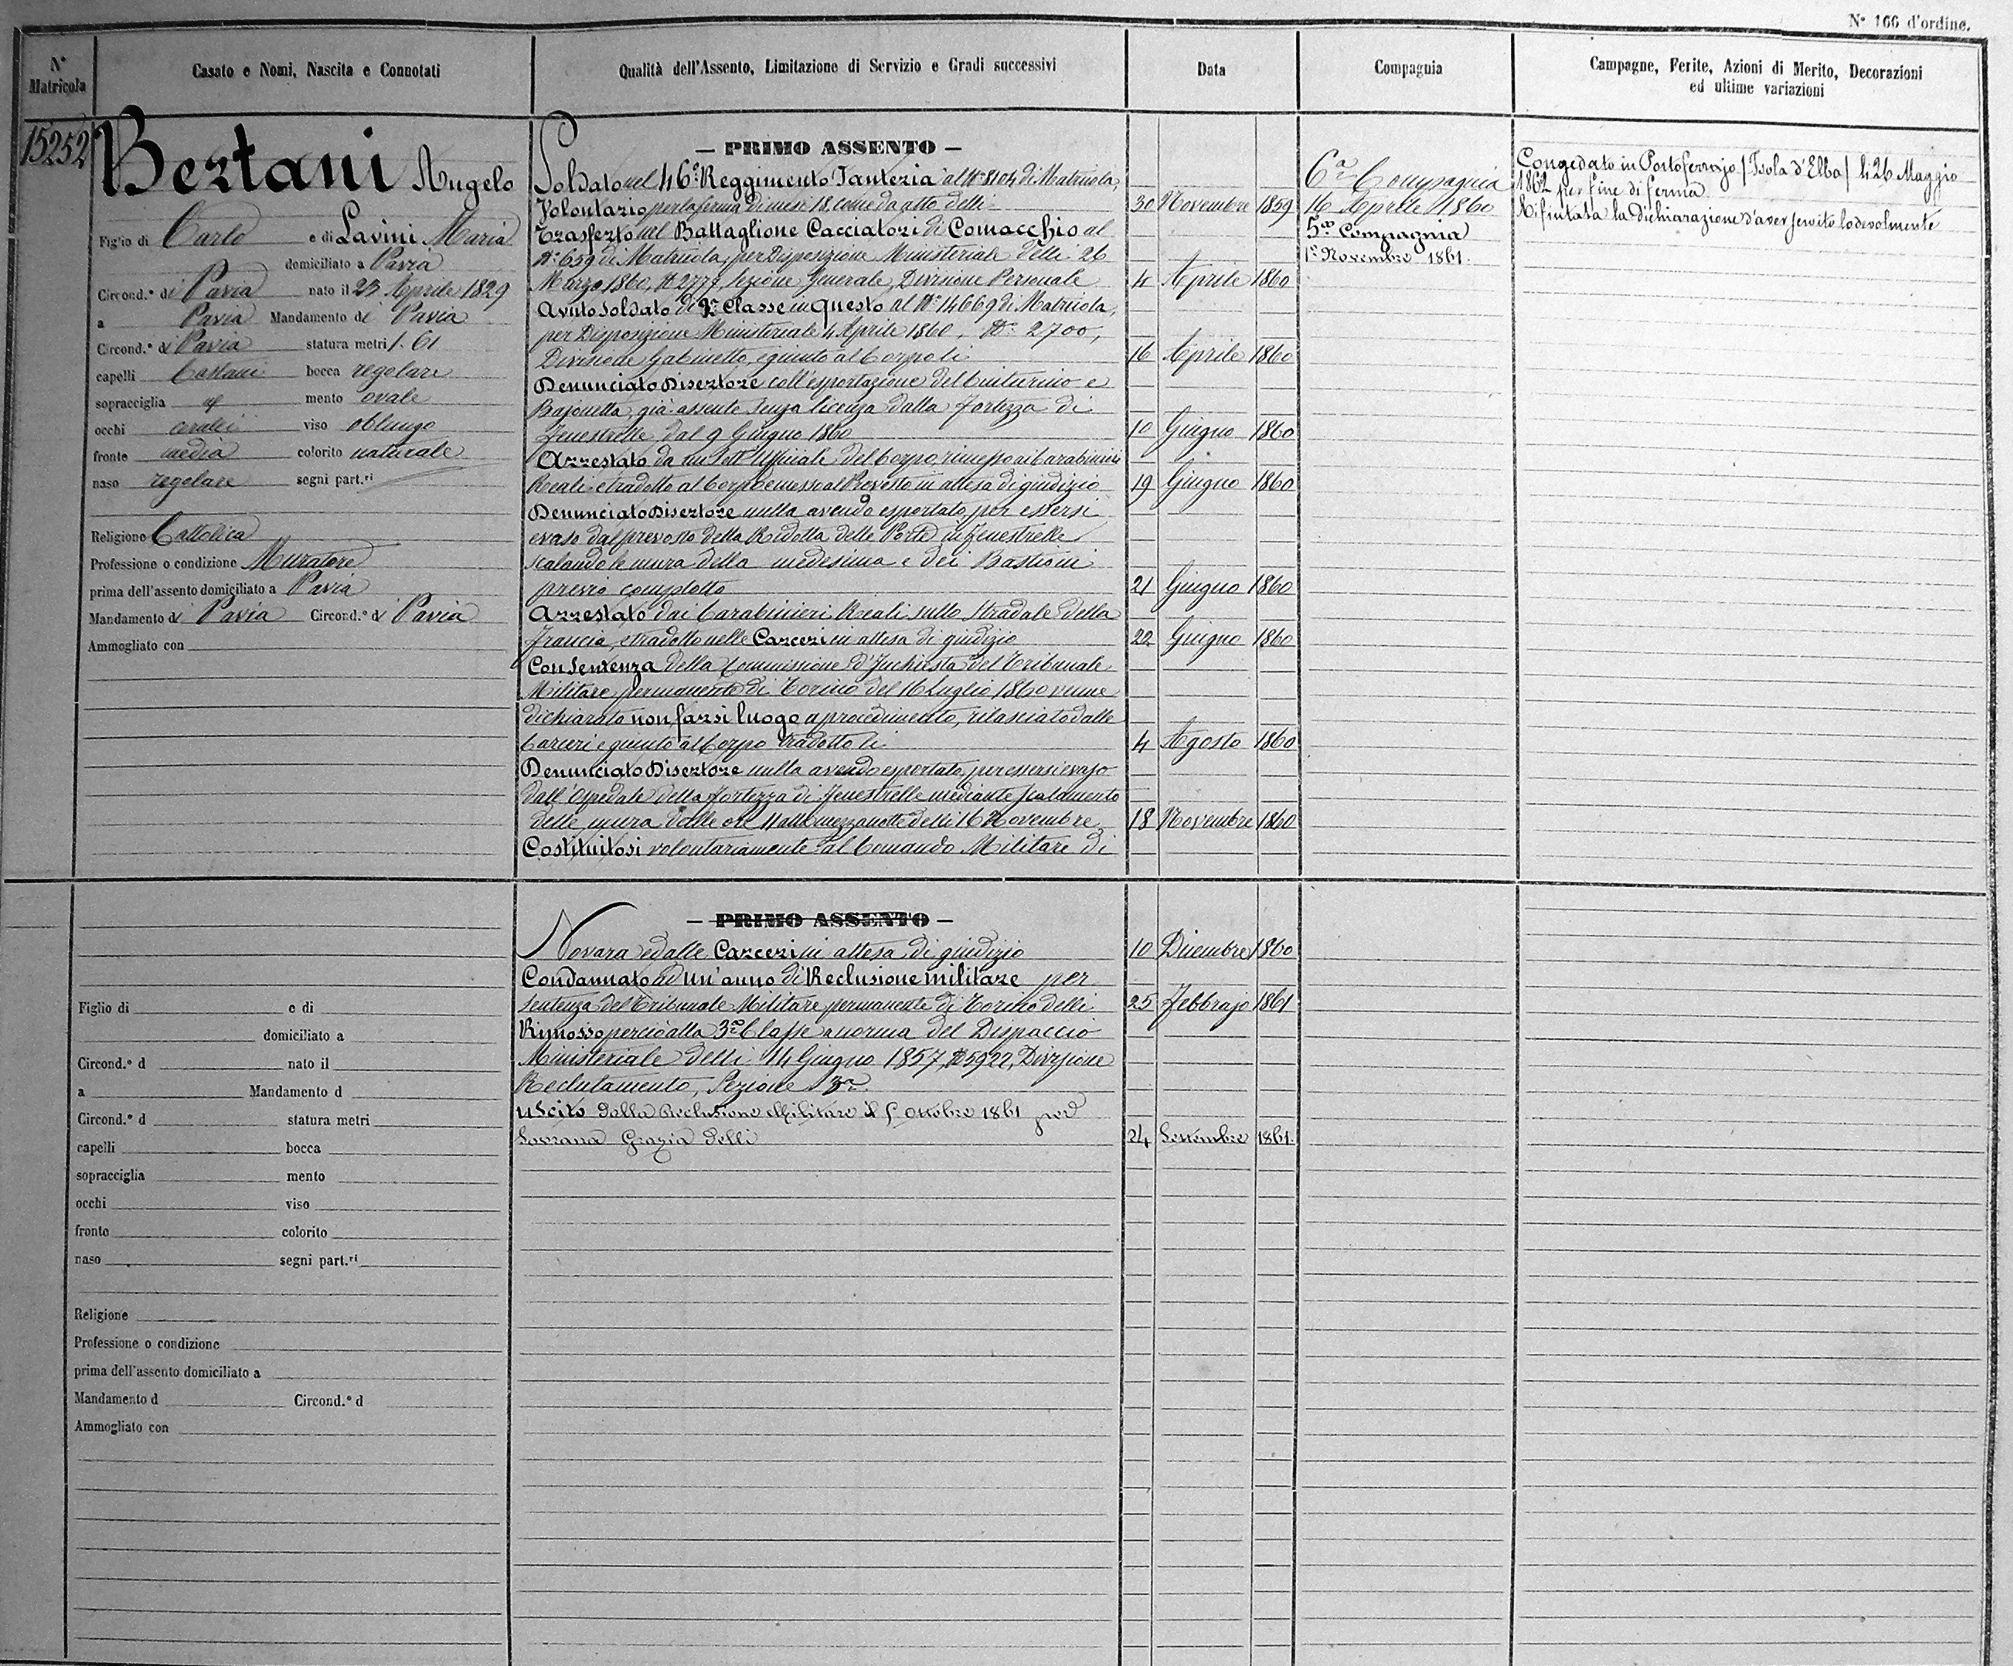 N° 166 d'ordine.
N° Matricola
Casato e Nomi, Nascita e Connotati
Qualità dell'Assento, Limitazione di Servizio e Gradi successivi
Data
Compagnia
Campagne, Ferite, Azioni di Merito, Decorazioni
ed ultime variazioni
15252
Bertani Angelo
Figlio di Carlo e di Lavini Maria
domiciliato a Pavia
Circond.° di Pavia nato il 23 Aprile 1829
a Pavia Mandamento di Pavia
Circond.° di Pavia statura metri 1. 61
capelli Castani bocca regolare
sopracciglia mento ovale
occhi cerulei viso oblungo
fronte media colorito naturale
naso regolare segni part.ri
Religione Cattolica
Professione o condizione Muratore
prima dell'assento domiciliato a Pavia
Mandamento di Pavia Circond.° di Pavia
Ammogliato con
— PRIMO ASSENTO —
Soldato nel 46° Reggimento Fanteria al N° 8104 di Matricola,
Volontario per la ferma di mesi 18, come da atto delli 30 Novembre 1859
Trasferto nel Battaglione Cacciatori di Comacchio al
N° 659 di Matricola, per Disposizione Ministeriale delli 26
Marzo 1860, N° 2777, Sezione Generale, Divisione Personale 4 Aprile 1860
Avuto Soldato di 2a Classe in questo al N° 14669 di Matricola,
per Disposizione Ministeriale 4 Aprile 1860, N° 2700,
Divisione Gabinetto, e giunto al Corpo li 16 Aprile 1860
Denunciato Disertore coll'esportazione del Cinturino e
Bajonetta, già assente senza licenza dalla Fortezza di
Fenestrelle dal 9 Giugno 1860 10 Giugno 1860
Arrestato da un Sott'Ufficiale del Corpo, rimesso ai Carabinieri
Reali e tradotto al Corpo e messo al Prevosto in attesa di giudizio 19 Giugno 1860
Denunciato Disertore nulla avendo esportato, per essersi
evaso dal prevosto della Ridotta delle Porte di Fenestrelle
scalando le mura della medesima e dei Bastioni
previo complotto 21 Giugno 1860
Arrestato dai Carabinieri Reali sullo stradale della
Francia, e tradotto nelle Carceri in attesa di giudizio 22 Giugno 1860
Con Sentenza della Commissione d'Inchiesta del Tribunale
Militare permanente di Torino del 16 Luglio 1860 venne
dichiarato non farsi luogo a procedimento, rilasciato dalle
Carceri e giunto al Corpo tradotto li 4 Agosto 1860
Denunciato Disertore nulla avendo esportato, per essersi evaso
dall'Ospedale della Fortezza di Fenestrelle mediante scalamento
delle mura dalle ore 11 alla mezzanotte delli 16 Novembre 18 Novembre 1860
Costituitosi volontariamente al Comando Militare di
6a Compagnia
16 Aprile 1860
5a Compagnia
1° Novembre 1861.
Congedato in Portoferrajo (Isola d'Elba) li 26 Maggio
1862 per fine di ferma
Rifiutata la dichiarazione d'aver servito lodevolmente
— PRIMO ASSENTO —
Novara e dalle Carceri in attesa di giudizio 10 Dicembre 1860
Condannato ad un'anno di Reclusione militare per
sentenza del Tribunale Militare permanente di Torino delli 25 Febbrajo 1861
Rimosso perciò alla 3a Classe a norma del Dispaccio
Ministeriale delli 14 Giugno 1857, N° 5922, Divisione
Reclutamento, Sezione 3a.
Uscito dalla Reclusione Militare il 5 Ottobre 1861 per
Sovrana Grazia delli 24 Settembre 1861.
Figlio di e di
domiciliato a
Circond.° d nato il
a Mandamento d
Circond.° d statura metri
capelli bocca
sopracciglia mento
occhi viso
fronte colorito
naso segni part.ri
Religione
Professione o condizione
prima dell'assento domiciliato a
Mandamento d Circond.° d
Ammogliato con